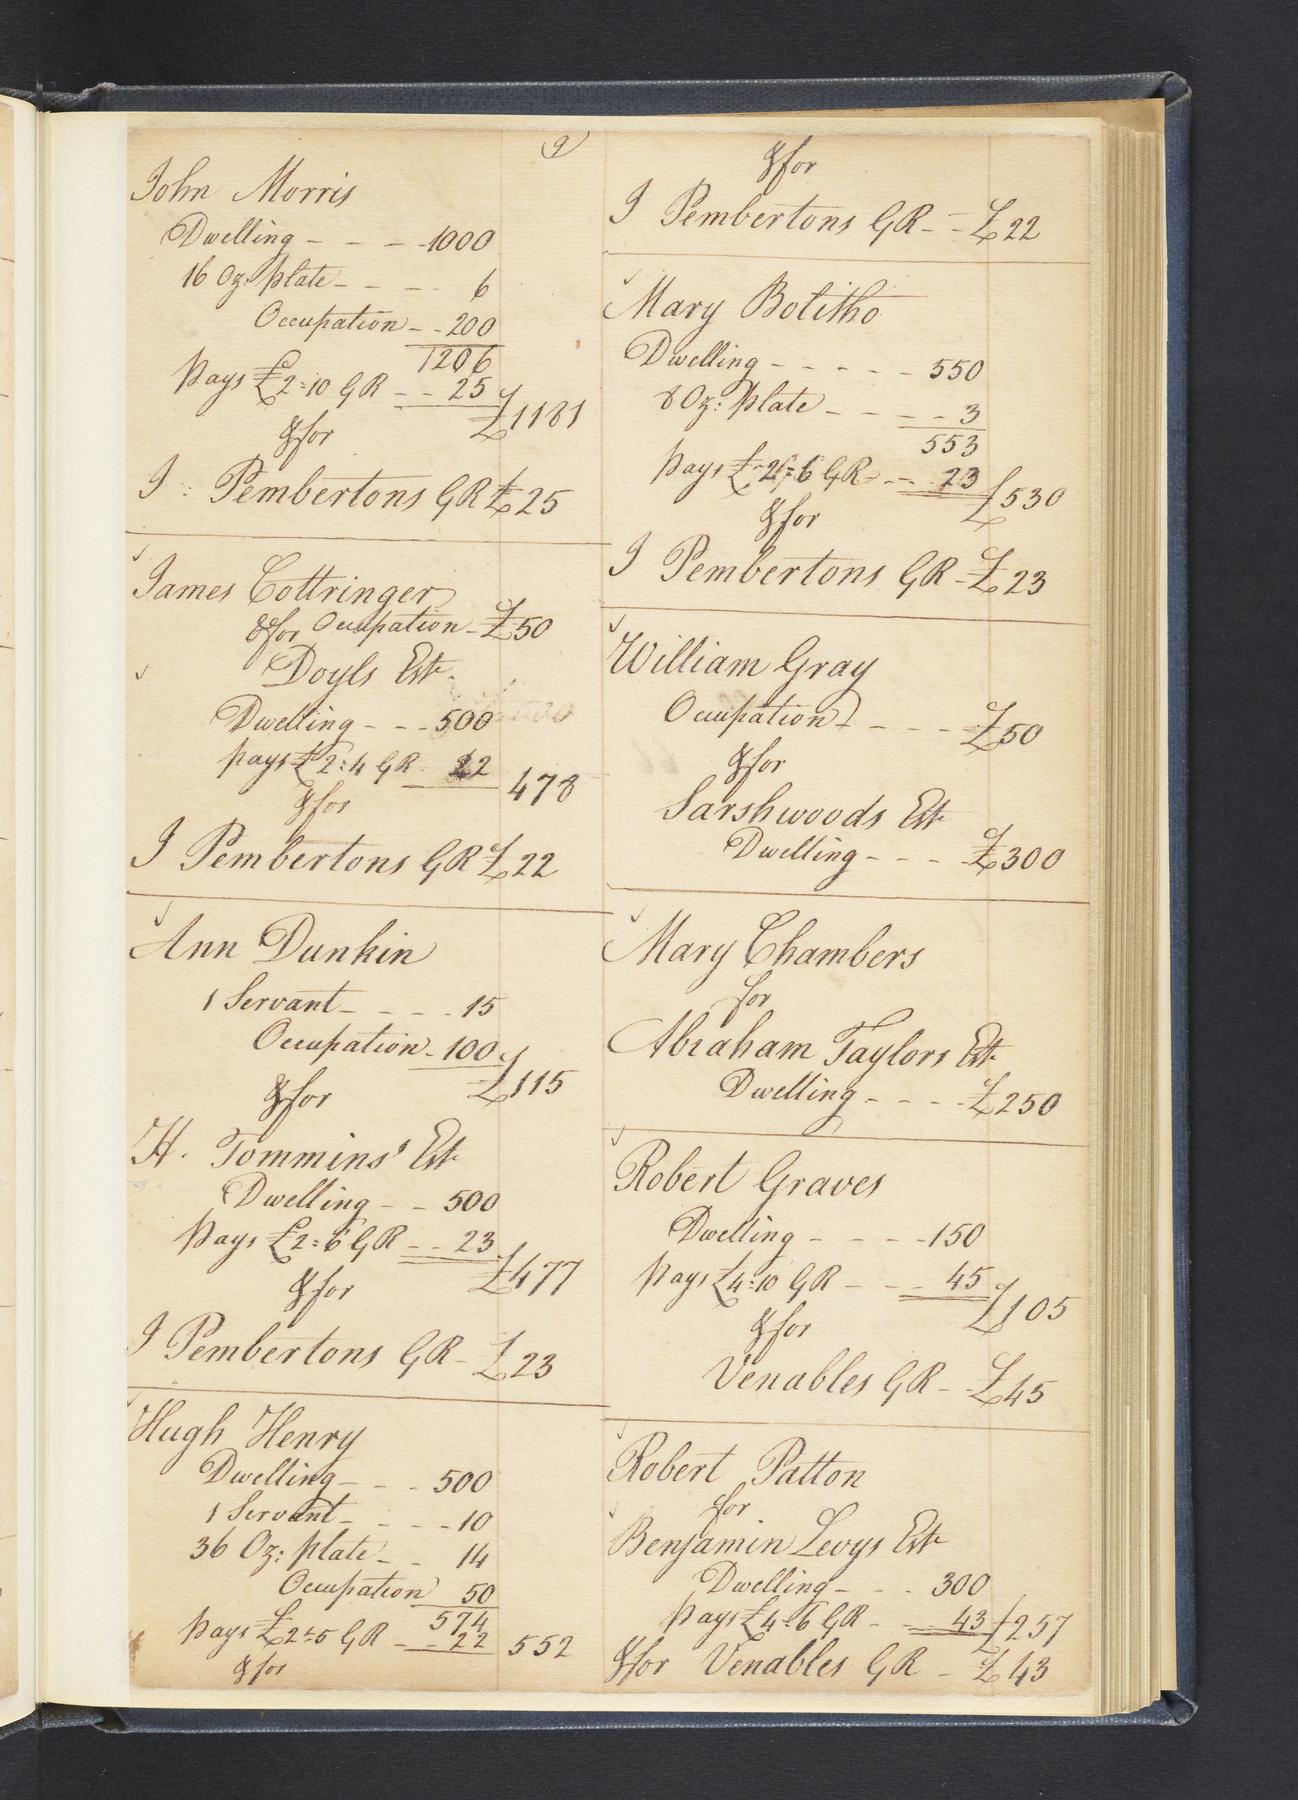 9
John Morris
Dwelling - - - 1000
16 Oz: plate - - - - 6
Occupation - - 200
1206
pays £2=10 GR - - 25
£1181
&for
J : Pembertons GR £25
James Cottringer
&for Occupation - £50
Doyls Estr.
Dwelling - - - 500
pays £2:4 GR - 22
478
&for
J Pembertons GR £22
Ann Dunkin
1 Servant - - - - 15
Occupation - 100
£115
&for
H. Tommins' Estr
Dwelling - - 500
pays £2=6 GR - - 23
£477
&for
J Pembertons GR - £23
Hugh Henry
Dwelling - - - 500
1 Servant - - - - 10
36 Oz: plate - - 14
Occupation 50
574
pays £2=5 GR - - 22
552
&for
&for
J Pembertons GR - - £22
Mary Bolitho
Dwelling - - - - - 550
8 Oz: plate - - - - 3
553
pays £2=6 GR - - 23
£530
&for
J Pembertons GR - £23
William Gray
Occupation - - - - £50
&for
Sarshwoods Estr
Dwelling - - - £300
Mary Chambers
for
Abraham Taylors Estr
Dwelling - - - - £250
Robert Graves
Dwelling - - - - 150
pays £4=10 GR - - - 45
£105
&for
Venables GR - - £45
Robert Patton
for
Benjamin Levys Estr
Dwelling - - - 300
pays £4=6 GR - - 43
£257
&for Venables GR - £43